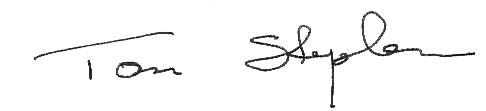 Tom Stephen